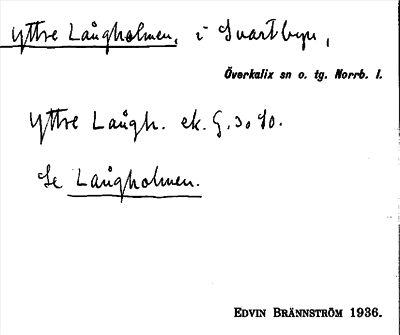 Yttre Långholmen, i Svartbyn,
Överkalix sn o. tg. Norrb. l.
Yttre Långh. ek. G. 30 40.
Se Långholmen.
EDVIN BRÄNNSTRÖM 1936.